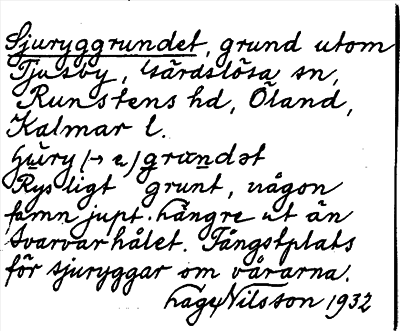 Sjuryggrundet, grund utom
Tjusby, Gärdslösa sn,
Runstens hd, Öland,
Kalmar l.
Rysligt grunt, någon
famn jupt. Längre ut än
Svarvarhålet. Fångstplats
för sjuryggar om vårarna.
Lage Nilsson 1932